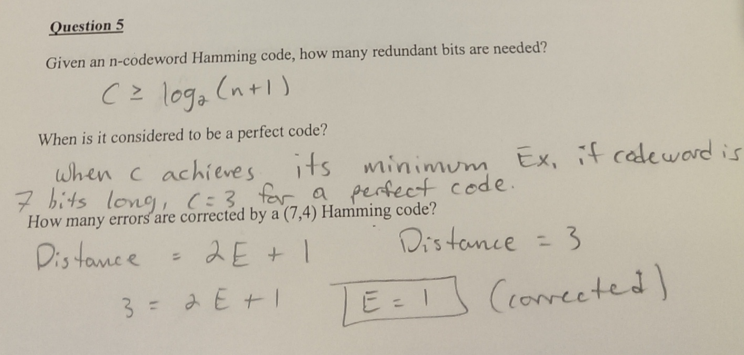 Question 5
Given an n-codeword Hamming code, how many redundant bits are needed?
C ≥ log₂ (n+1)
When is it considered to be a perfect code?
When c achieves its minimum Ex. if codeword is
7 bits long, C=3 for a perfect code.
How many errors are corrected by a (7,4) Hamming code?
Distance = 2E + 1 Distance = 3
3 = 2E + 1 E = 1 (corrected)